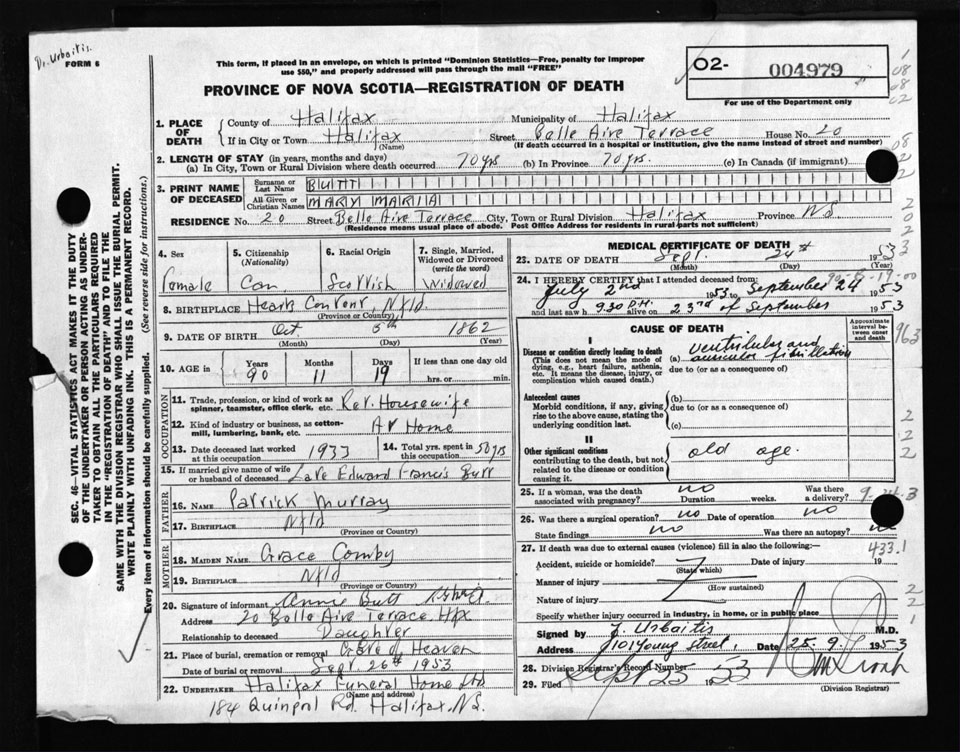 Dr. Urbaitis.
FORM 6
This form, if placed in an envelope, on which is printed "Dominion Statistics—Free, penalty for improper
use $50," and properly addressed will pass through the mail "FREE"
PROVINCE OF NOVA SCOTIA—REGISTRATION OF DEATH
02- 004979
For use of the Department only
1. PLACE OF DEATH County of Halifax Municipality of Halifax
If in City or Town Halifax (Name) Street Belle Aire Terrace House No. 20
(If death occurred in a hospital or institution, give the name instead of street and number)
2. LENGTH OF STAY (in years, months and days)
(a) In City, Town or Rural Division where death occurred 70 yrs (b) In Province 70 yrs. (c) In Canada (if immigrant)
3. PRINT NAME OF DECEASED Surname or Last Name BUTT
All Given or Christian Names MARY MARIA
RESIDENCE No. 20 Street Belle Aire Terrace City, Town or Rural Division Halifax Province NS
(Residence means usual place of abode. Post Office Address for residents in rural parts not sufficient)
4. Sex Female
5. Citizenship (Nationality) Can
6. Racial Origin Scottish
7. Single, Married, Widowed or Divorced (write the word) Widowed
8. BIRTHPLACE Hearts Content, Nfld.
(Province or Country)
9. DATE OF BIRTH Oct 5th 1862
(Month) (Day) (Year)
10. AGE in Years 90 Months 11 Days 19 If less than one day old hrs. or min.
OCCUPATION
11. Trade, profession, or kind of work as spinner, teamster, office clerk, etc. Ret. Housewife
12. Kind of industry or business, as cotton-mill, lumbering, bank, etc. At Home
13. Date deceased last worked at this occupation 1933
14. Total yrs. spent in this occupation 50 yrs
15. If married give name of wife or husband of deceased Late Edward Francis Butt
FATHER
16. NAME Patrick Murray
17. BIRTHPLACE Nfld
(Province or Country)
MOTHER
18. MAIDEN NAME Grace Comby
19. BIRTHPLACE Nfld
(Province or Country)
20. Signature of informant Annie Butt
Address 20 Belle Aire Terrace Hfx
Relationship to deceased Daughter
21. Place of burial, cremation or removal Gate of Heaven
Date of burial or removal Sept 26th 1953
22. UNDERTAKER Halifax Funeral Home Ltd
(Name and address)
184 Quinpool Rd. Halifax, NS.
MEDICAL CERTIFICATE OF DEATH
23. DATE OF DEATH Sept. 24th 1953
(Month) (Day) (Year)
24. I HEREBY CERTIFY that I attended deceased from
July 2nd 1953 to September 24 1953
and last saw h 9.30 P.M. alive on 23rd of September 1953
CAUSE OF DEATH
Approximate interval between onset and death
I
Disease or condition directly leading to death
(This does not mean the mode of dying, e.g., heart failure, asthenia, etc. It means the disease, injury, or complication which caused death.)
(a) ventricular and auricular fibrillation
due to (or as a consequence of)
Antecedent causes
Morbid conditions, if any, giving rise to the above cause, stating the underlying condition last.
(b)
due to (or as a consequence of)
(c)
II
Other significant conditions
contributing to the death, but not related to the disease or condition causing it.
old age.
25. If a woman, was the death associated with pregnancy? no Duration weeks. Was there a delivery?
26. Was there surgical operation? no Date of operation no
State findings no Was there an autopsy? no
27. If death was due to external causes (violence) fill in also the following:—
433.1
Accident, suicide or homicide? (State which) Date of injury 19
Manner of injury (How sustained)
Nature of injury
Specify whether injury occurred in industry, in home, or in public place
Signed by J. Urbaitis M.D.
Address 101 Young street, Date 25.9. 1953
28. Division Registrar's Record Number
29. Filed Sept 25 1953
(Division Registrar)
SEC. 46—VITAL STATISTICS ACT MAKES IT THE DUTY
OF THE UNDERTAKER OR PERSON ACTING AS UNDER-
TAKER TO OBTAIN ALL THE PARTICULARS REQUIRED
IN THE "REGISTRATION OF DEATH" AND TO FILE THE
SAME WITH THE DIVISION REGISTRAR WHO SHALL ISSUE THE BURIAL PERMIT.
WRITE PLAINLY WITH UNFADING INK. THIS IS A PERMANENT RECORD.
Every item of information should be carefully supplied. (See reverse side for instructions.)